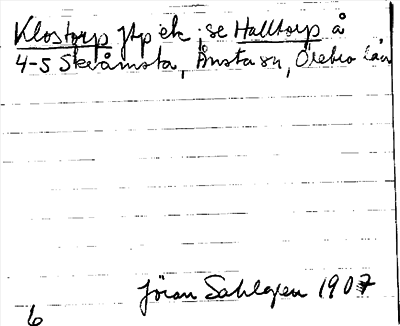 Klostorp ftp ek. se Halltorp å
4-5 Skråmsta, Ånsta sn, Örebro län
Jöran Sahlgren 1907
6